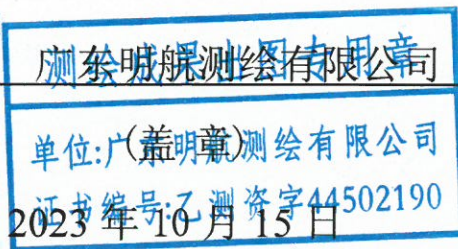 测绘成果出图专用章
广东明航测绘有限公司
单位:广东明航测绘有限公司
(盖 章)
证书编号:乙测资字44502190
2023 年 10 月 15 日